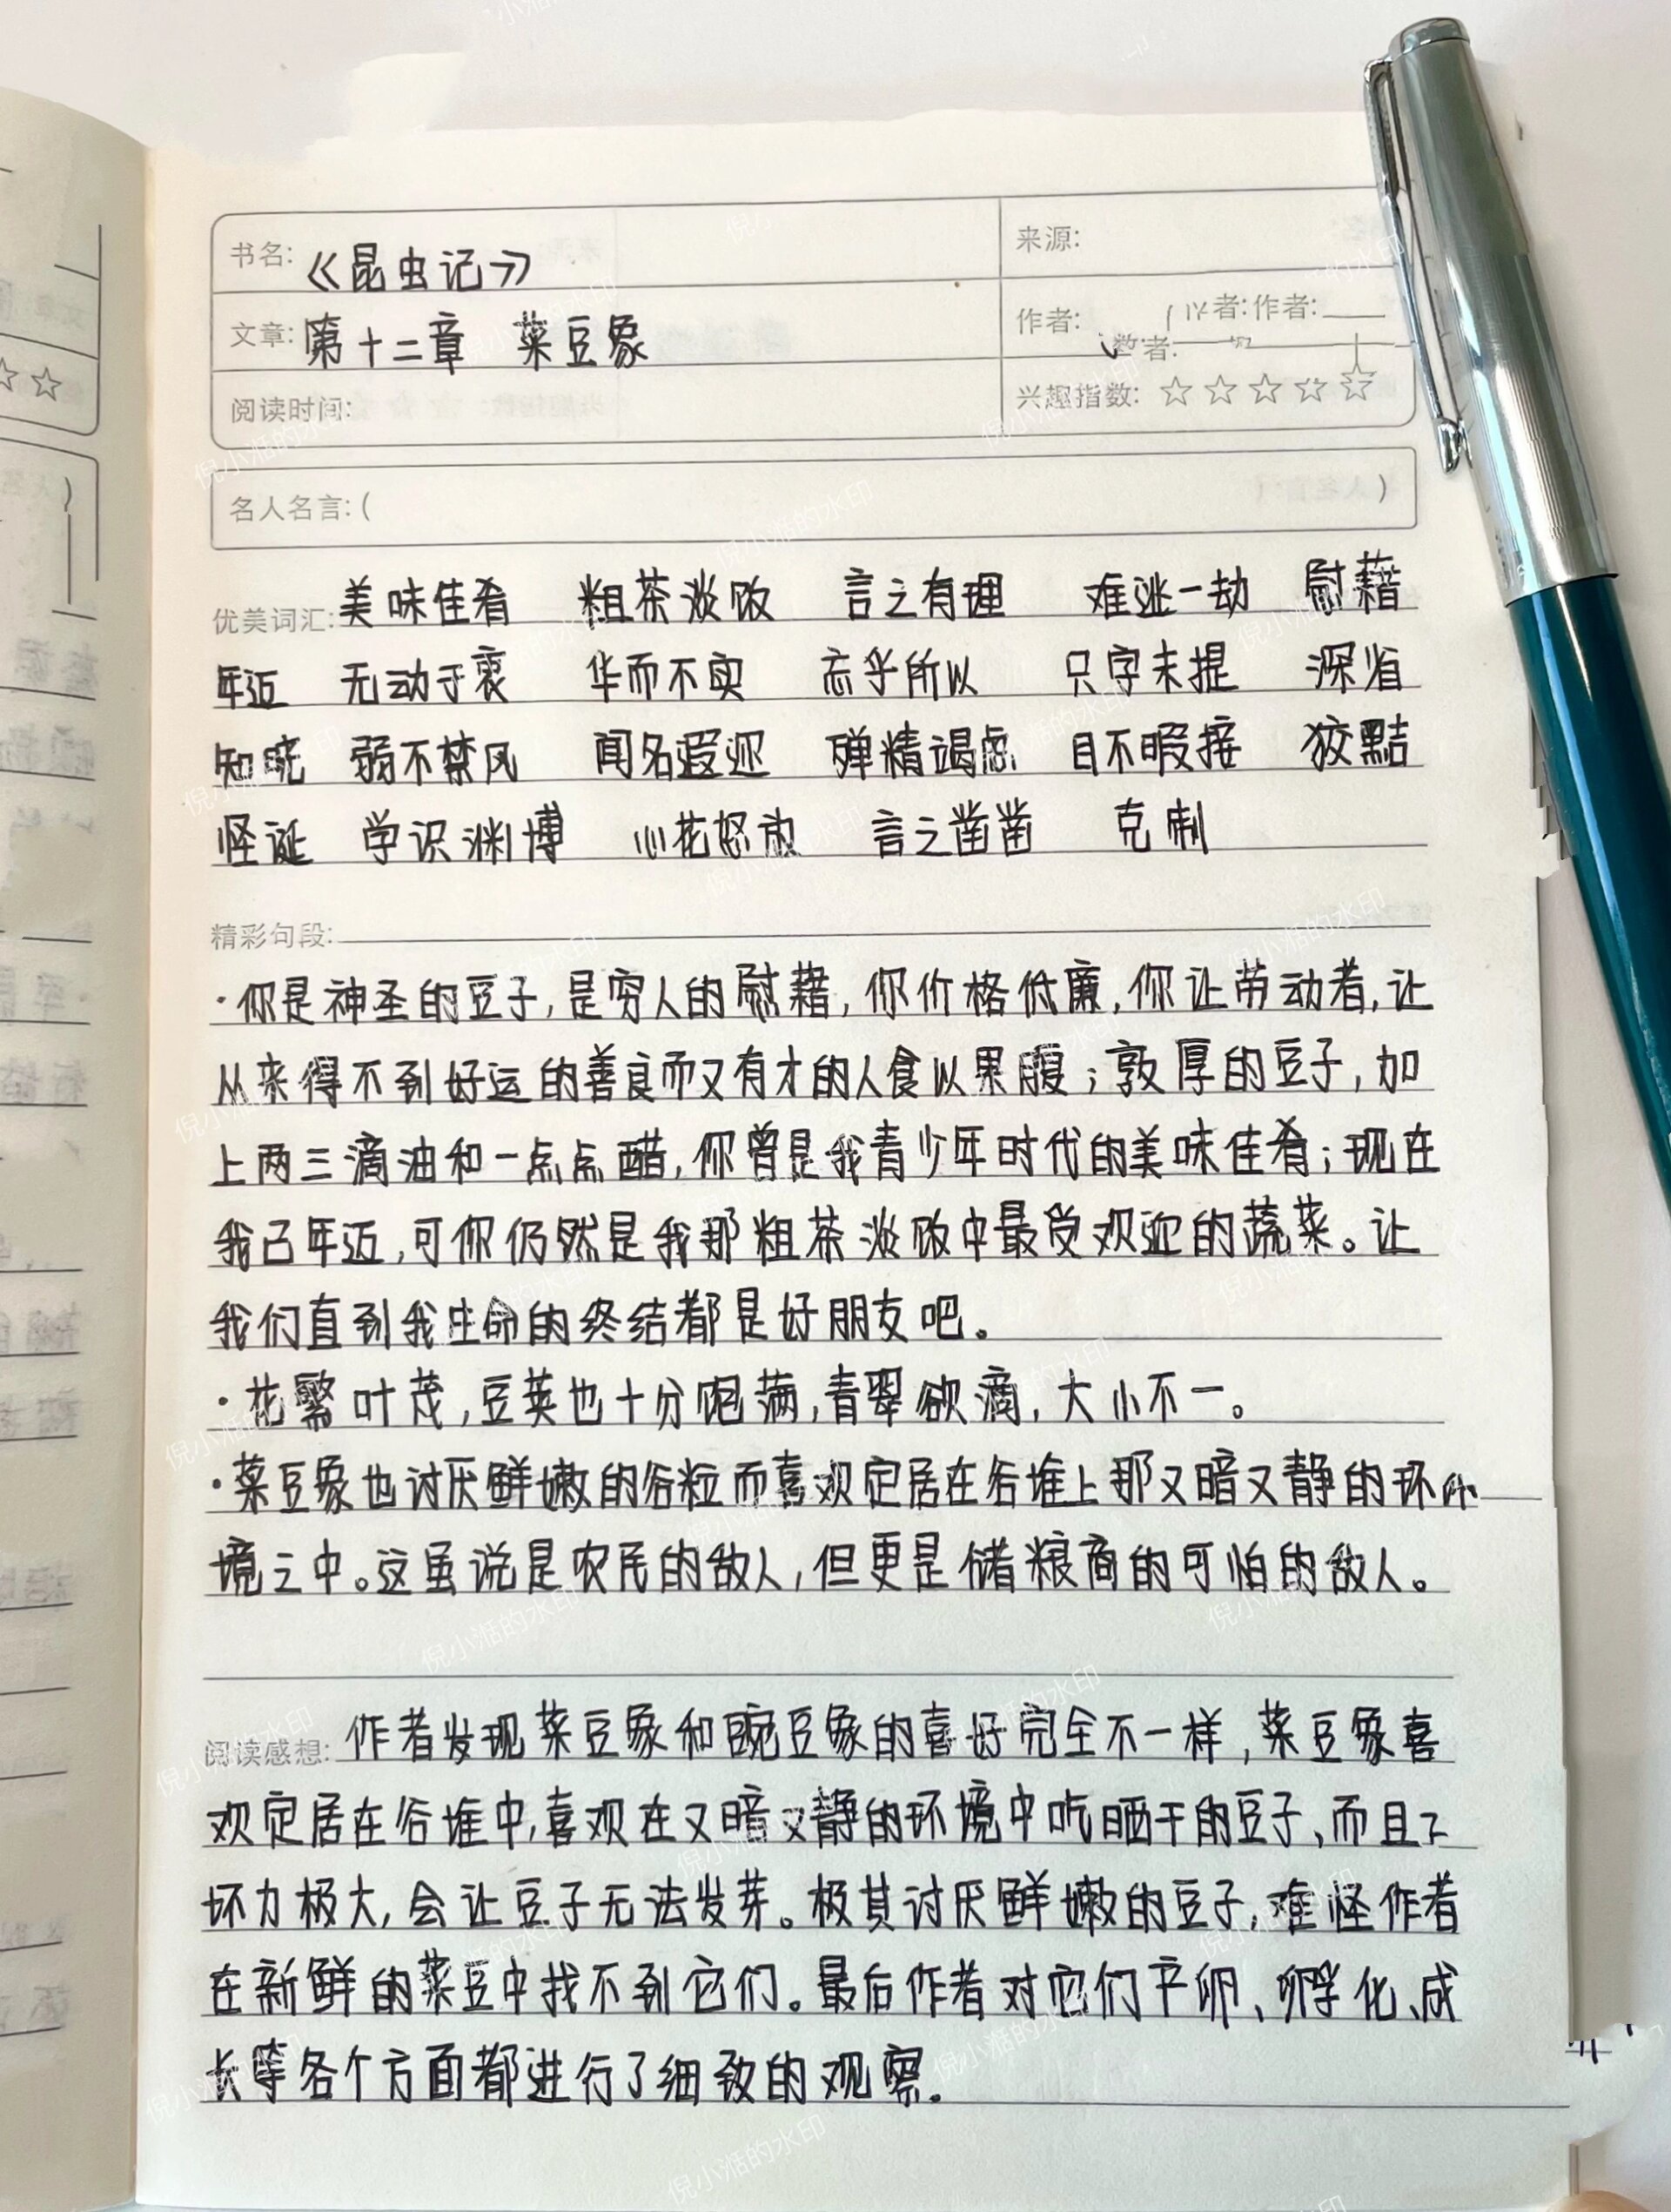 书名: 《昆虫记》
来源:
文章: 第十二章 菜豆象
作者:
阅读时间:
兴趣指数: ☆ ☆ ☆ ☆ ☆
名人名言:( )
优美词汇: 美味佳肴 粗茶淡饭 言之有理 难逃一劫 慰藉
年迈 无动于衷 华而不实 忘乎所以 只字未提 深省
知晓 弱不禁风 闻名遐迩 殚精竭虑 目不暇接 狡黠
怪诞 学识渊博 心花怒放 言之凿凿 克制
精彩句段:
·你是神圣的豆子,是穷人的慰藉,你价格低廉,你让劳动者,让
从来得不到好运的善良而又有才的人食以果腹;敦厚的豆子,加
上两三滴油和一点点醋,你曾是我青少年时代的美味佳肴;现在
我已年迈,可你仍然是我那粗茶淡饭中最受欢迎的蔬菜。让
我们直到我生命的终结都是好朋友吧。
·花繁叶茂,豆荚也十分饱满,青翠欲滴,大小不一。
·菜豆象也讨厌鲜嫩的谷粒而喜欢定居在谷堆上那又暗又静的环
境之中。这虽说是农民的敌人,但更是储粮商的可怕的敌人。
阅读感想: 作者发现菜豆象和豌豆象的喜好完全不一样,菜豆象喜
欢定居在谷堆中,喜欢在又暗又静的环境中吃晒干的豆子、而且
坏力极大,会让豆子无法发芽。极其讨厌鲜嫩的豆子,难怪作者
在新鲜的菜豆中找不到它们。最后作者对它们产卵、孵化、成
长等各个方面都进行了细致的观察。
倪小湉的水印